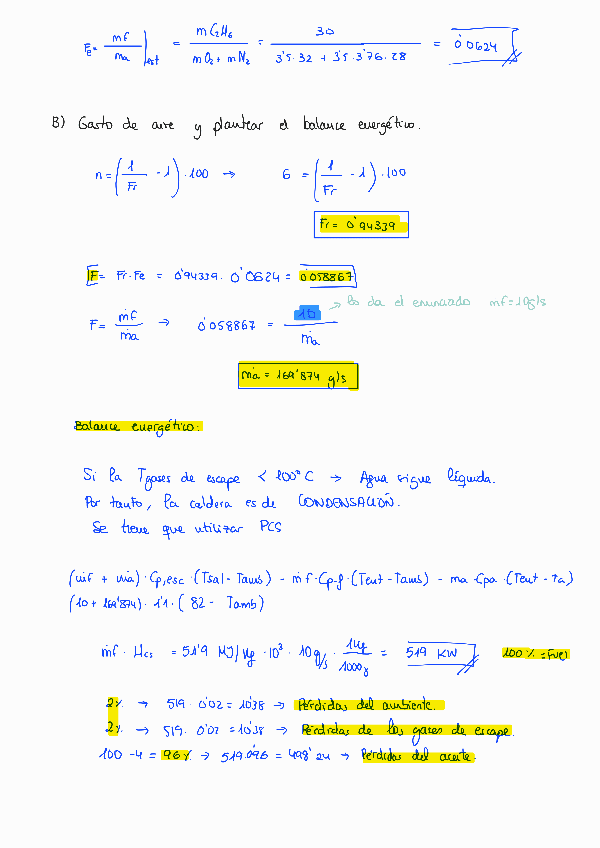 Fe = mf/ma |est = mC2H6 / (mO2 + mN2) = 30 / (3'5·32 + 3'5·3'76·28) = 0'0624
B) Gasto de aire y plantear el balance energético.
n = (1/Fr - 1)·100 → 6 = (1/Fr - 1)·100
Fr = 0'94339
F = Fr·Fe = 0'94339·0'0624 = 0'058867
F = ṁf/ṁa → 0'058867 = 10/ṁa → lo da el enunciado mf=10g/s
ṁa = 169'874 g/s
Balance energético:
Si la Tgases de escape < 100°C → Agua sigue líquida.
Por tanto, la caldera es de CONDENSACIÓN.
Se tiene que utilizar PCS
(ṁf + ṁa)·Cp,esc·(Tsal - Tamb) - ṁf·Cpf·(Tent - Tamb) - ma·Cpa·(Tent - Ta)
(10 + 169'874)·1'1·(82 - Tamb)
ṁf·Hcs = 51'9 MJ/kg·10³·10g/s·1kg/1000g = 519 KW 100% = Fuel
2% → 519·0'02 = 10'38 → Pérdidas del ambiente.
2% → 519·0'02 = 10'38 → Pérdidas de los gases de escape.
100 - 4 = 96% → 519·0'96 = 498'24 → Pérdidas del aceite.